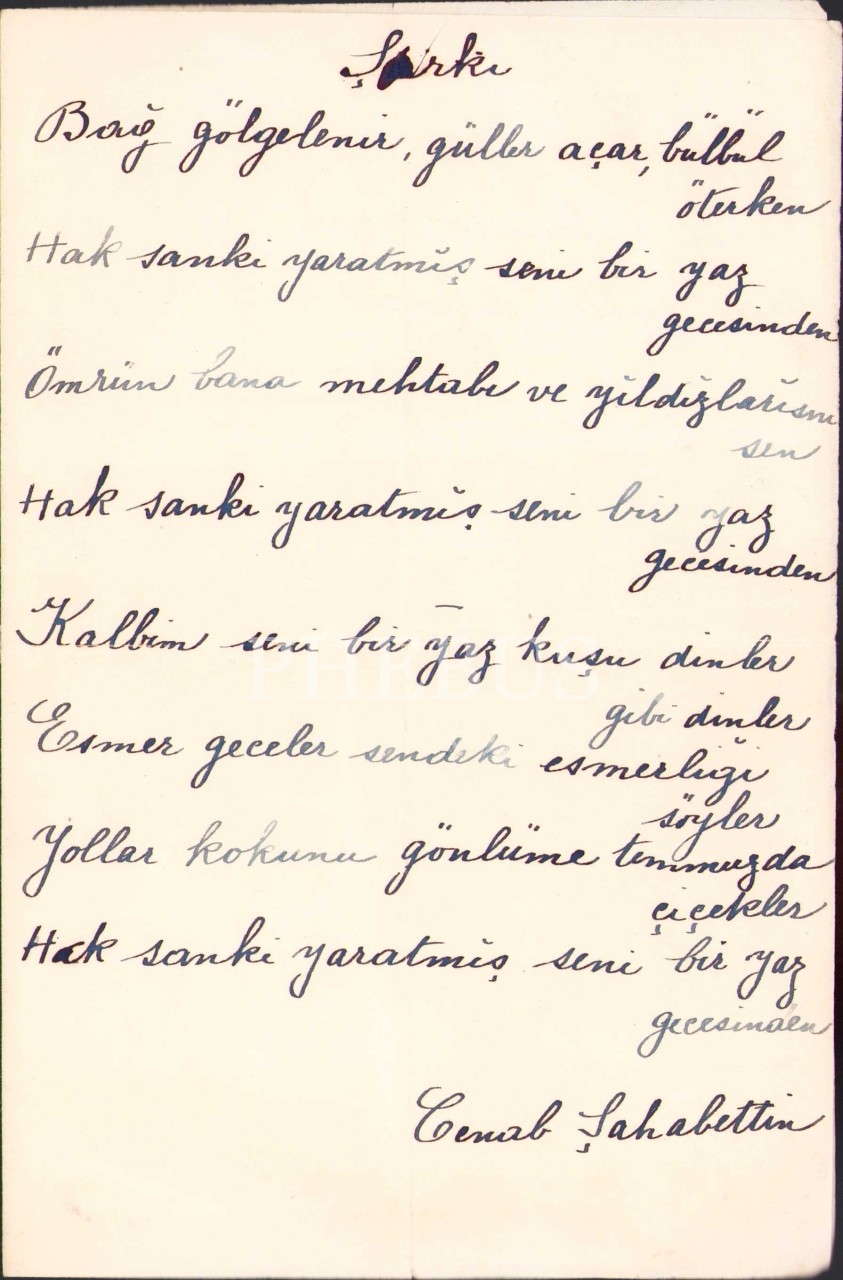 Şarkı
Bağ gölgelenir, güller açar, bülbül
öterken
Hak sanki yaratmış seni bir yaz
gecesinden
Ömrün bana mehtabı ve yıldızlarısın
sen
Hak sanki yaratmış seni bir yaz
gecesinden
Kalbim seni bir yaz kuşu dinler
gibi dinler
PHEBUS
Esmer geceler sendeki esmerliği
söyler
Yollar kokunu gönlüme temmuzda
çiçekler
Hak sanki yaratmış seni bir yaz
gecesinden
Cenab Şahabettin